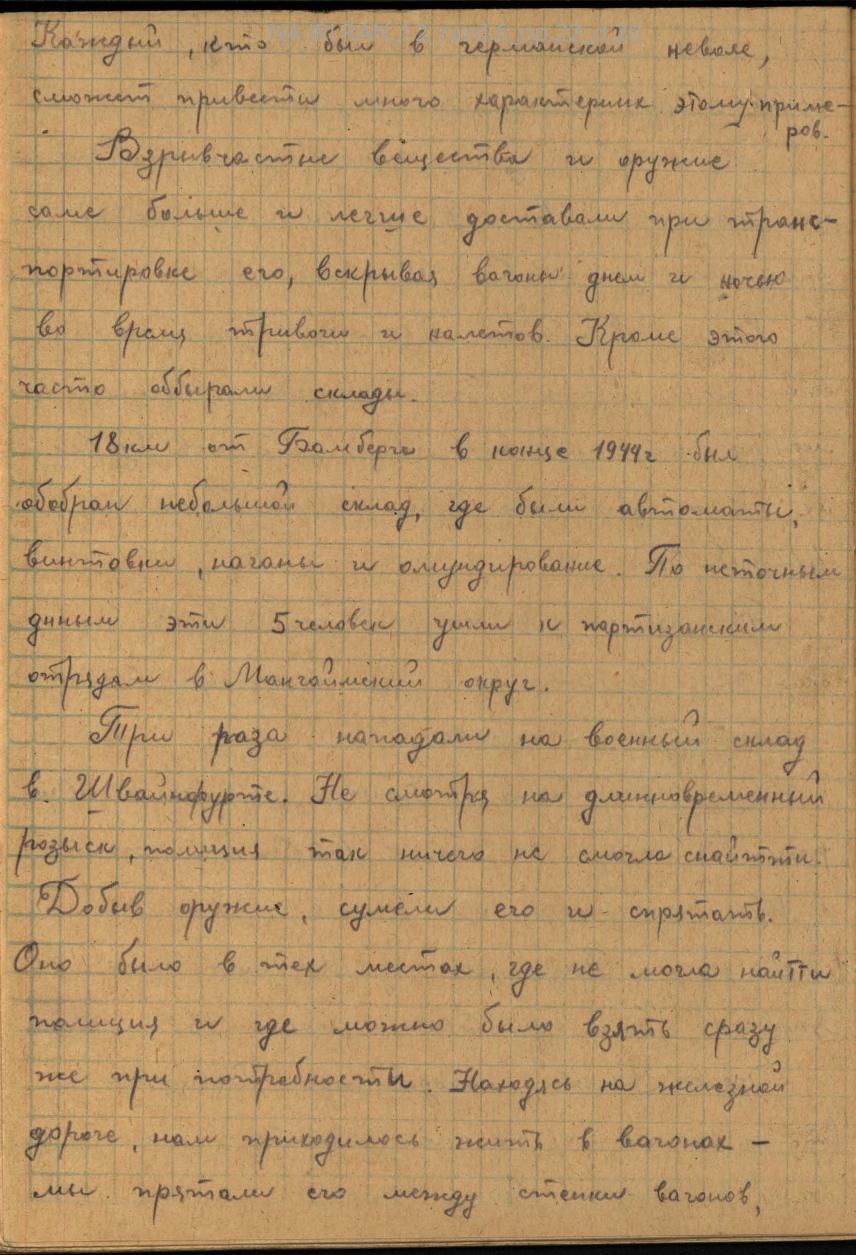 Каждый, кто был в германской неволе,
сможет привести много характерник этому приме-
ров.
Взрывчастые вещества и оружие
саме больше и легше доставали при транс-
портировке его, вскрывая вагоны днем и ночью
во время тривоги и налетов. Кроме этого
часто оббырали склады.
18 км от Бамберга в конце 1944 г был
обобран небольшой склад, где были автоматы,
винтовки, наганы и омундирование. По неточным
дпным эти 5 человек ушли к партизанским
отрядам в Мангаймский округ.
Три раза нападали на военный склад
в. Швайнфурте. Не смотря на длинновременный
розыск, полиция так ничего не смогла снайтти.
Добыв оружие, сумели его и спрятать.
Оно было в тех местах, где не могла найтти
полиция и где можно было взять сразу
же при потребности. Находясь на железной
дороге, нам приходилось жить в вагонах –
мы прятали его между стенки вагонов,